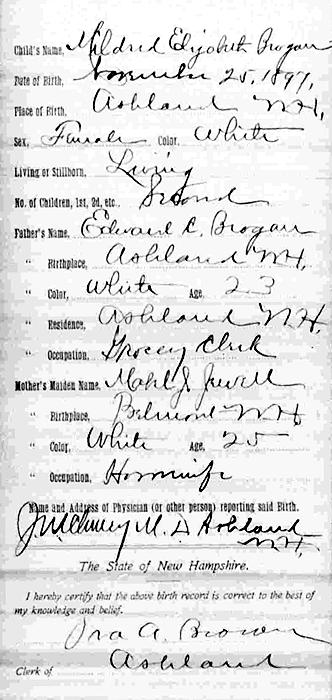 Child's Name, Mildred Elizabeth Brogan
Date of Birth, November 25, 1897,
Place of Birth, Ashland N.H,
Sex, Female Color, White
Living or Stillborn, Living
No. of Children, 1st, 2d, etc., Second
Father's Name, Edward C. Brogan
" Birthplace, Ashland N.H,
" Color, White Age, 23
" Residence, Ashland N.H,
" Occupation, Grocey Clerk
Mother's Maiden Name, Mable J Jewell
" Birthplace, Belmont N.H,
" Color, White Age, 25
" Occupation, Housewife
Name and Address of Physician (or other person) reporting said Birth.
M. D Ashland
N.H,
The State of New Hampshire.
I hereby certify that the above birth record is correct to the best of
my knowledge and belief.
Ora A. Brown
Clerk of Ashland